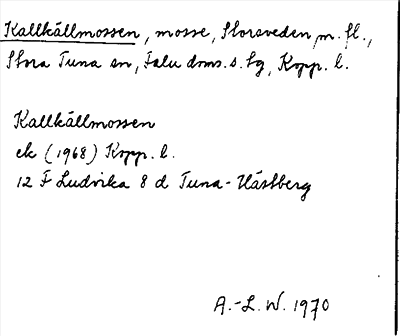 Kallkällmossen, mosse, Storsveden m. fl.,
Stora Tuna sn, Falu doms. s. tg, Kopp. l.
Kallkällmossen
ek (1968) Kopp. l.
12 F Ludvika 8 d Tuna-Hästberg
A.-L. W. 1970